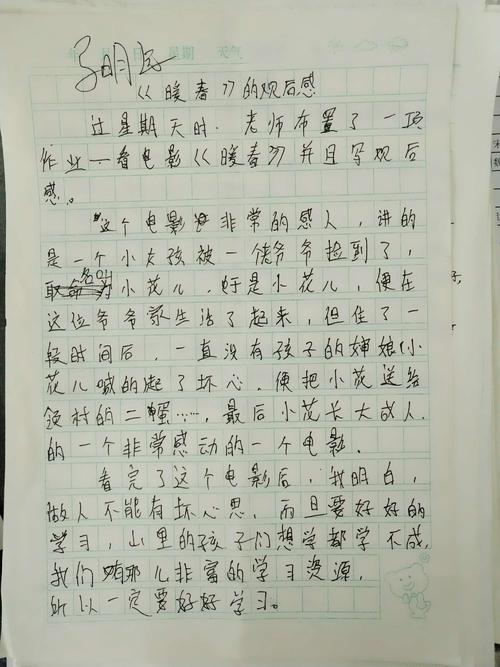 年 日 星期 天气
《暖春》的观后感
过星期天时，老师布置了一项
作业一看电影《暖春》并且写观后
感。
这个电影非常的感人，讲的
是一个小女孩被一佬爷爷捡到了，
取名叫小花儿，于是小花儿，便在
这位爷爷家生活了起来，但住了一
段时间后，一直没有孩子的婶娘(小
花儿喊的)起了坏心，便把小花送给
领村的二蛋……，最后小花长大成人.
的一个非常感动的一个电影.
看完了这个电影后，我明白，
做人不能有坏心思，而且要好好的
学习，山里的孩子们想学都学不成，
我们有那么丰富的学习资源，
所以一定要好好学习。